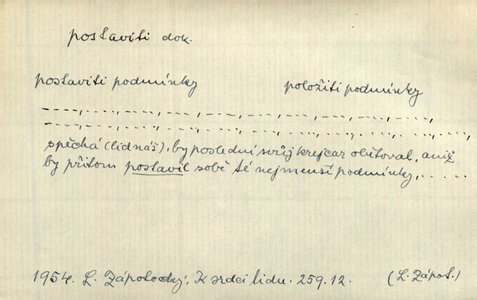 postaviti dok.
postaviti podmínky položiti podmínky
spěchá (lid náš), by poslední svůj krejcar obětoval, aniž
by přitom postavil sobě té nejmenší podmínky, .....
1954. L. Zápotocký: K srdci lidu. 259.12. (L. Zápot.)